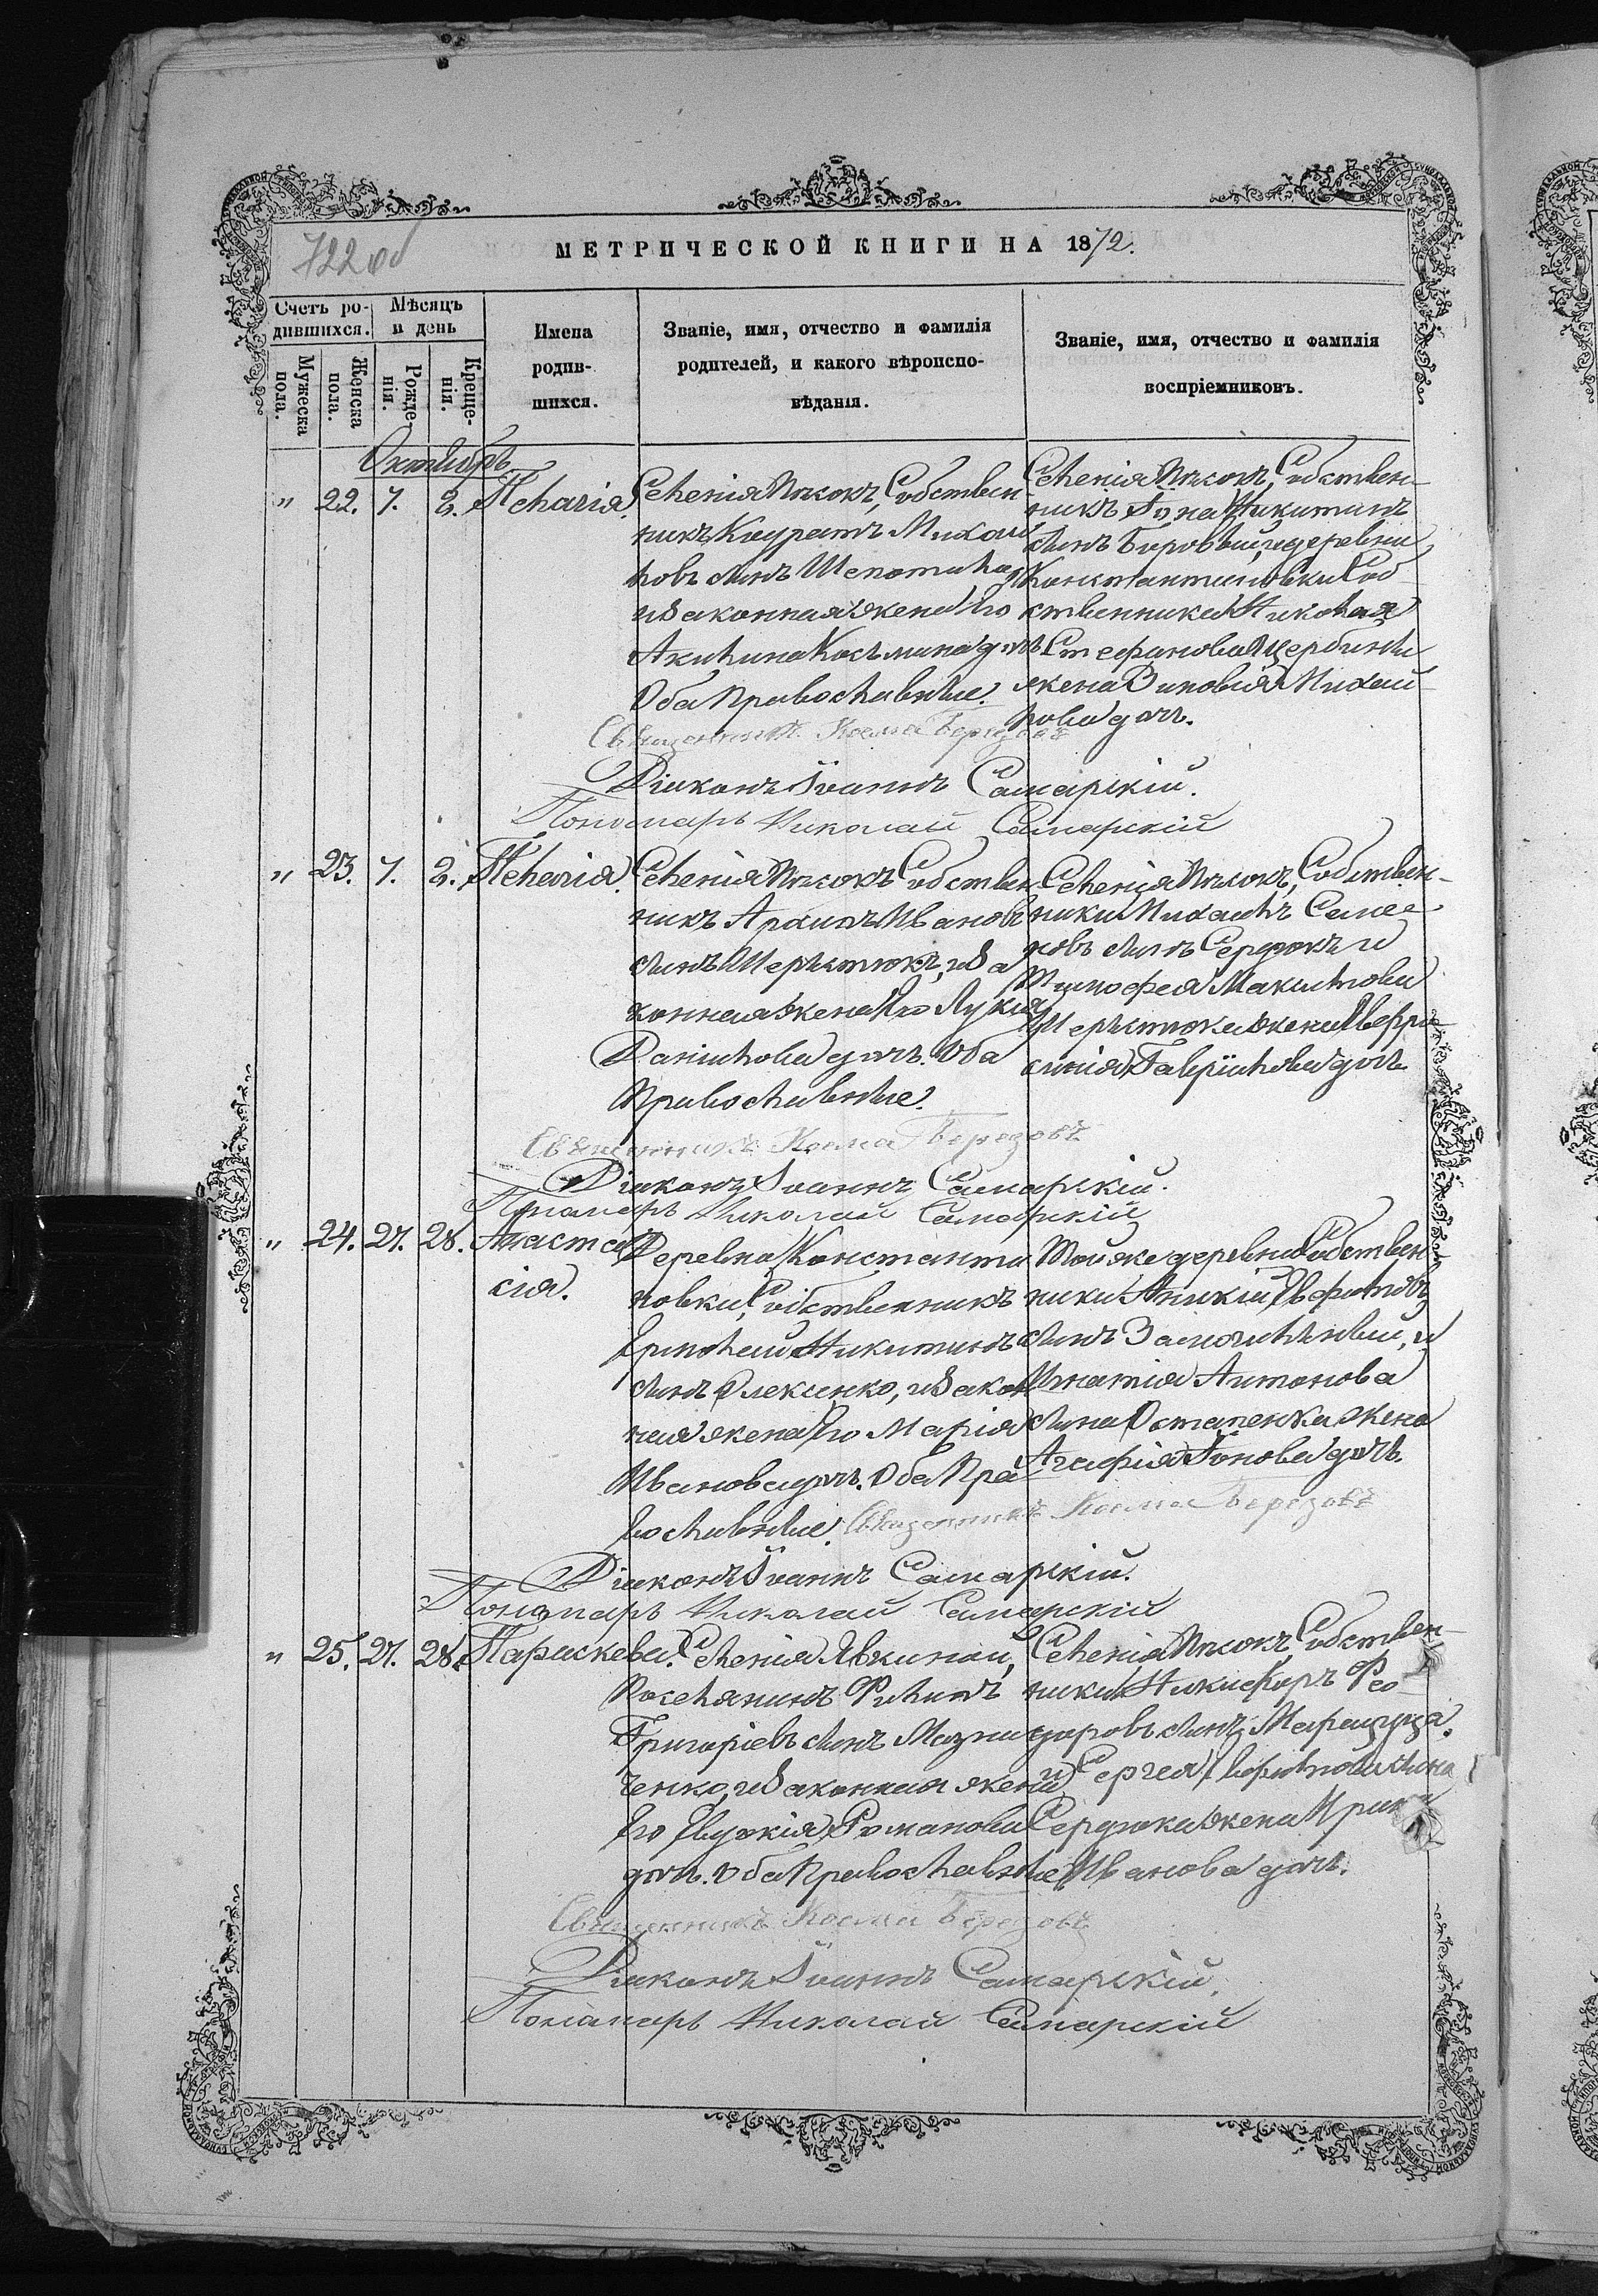 722 об
МЕТРИЧЕСКОЙ КНИГИ НА 1872.
Счетъ родившихся.
Мѣсяцъ и день
Имена родившихся.
Званіе, имя, отчество и фамилія родителей, и какого вѣроисповѣданія.
Званіе, имя, отчество и фамилія воспріемниковъ.
Мужеска пола.
Женска пола.
Рожденія.
Крещенія.
Октябрь
" 22. 1. 2. Пелагія.
Селенія Песокъ, Собствен-
никъ Кодратъ Михай
ловъ сынъ
и законная жена Его
Акилина Косьмина дочь
Оба Православные.
Селенія Песокъ, Собствен-
никъ Іона Никитинъ
сынъ Боровый, и деревни
Константиновки Соб-
ственника Николая
Стефанова Щербины
жена Зиновія Михай-
лова доч.
Священникъ Косма Березовъ
Діаконъ Іоаннъ Самарскій.
Пономарь Николай Самарскій
" 23. 1. 2. Пелагія.
Селенія Песокъ Собствен
никъ Архипъ Ивановъ
сынъ Шерстюкъ, и за
конная жена Его Лукія
Данилова дочь. Оба
Православные.
Селенія Песокъ, Собствен-
ники Михаилъ Симео-
новъ сынъ Сердюкъ и
Тимофея Макимова
Шерстюка жена Евфро
синія Гавріилова дочь
Священникъ Косма Березовъ
Діаконъ Іоаннъ Самарскій.
Пономарь Николай Самарскій
" 24. 27. 28. Анаста
сія.
Деревни Константи
новки, Собственникъ
Ермолай Никитинъ
сынъ Олексенко, и закон
ная жена Его Марія
Иванова дочь. Оба Пра
вославные.
Той же деревни Собствен
ники Аникій Евфимовъ
сынъ, и
Игнатія Антонова
сына Остапенка жена
Агафія Іонова дочь
Священникъ Косма Березовъ
Діаконъ Іоаннъ Самарскій.
Пономарь Николай Самарскій
" 25. 27. 28. Параскева.
Селенія Явкиной,
Поселянинъ Филипъ
Григоріевъ сынъ Мазни
ченко, и законная жена
Его Евдокія Романова
дочь. Оба Православные
Селенія Песокъ, Собствен-
ники Никифоръ Фео-
доровъ сынъ
и Сергея Евфимова сына
Сердюка жена
Иванова дочь.
Священникъ Косма Березовъ
Діаконъ Іоаннъ Самарскій.
Пономарь Николай Самарскій